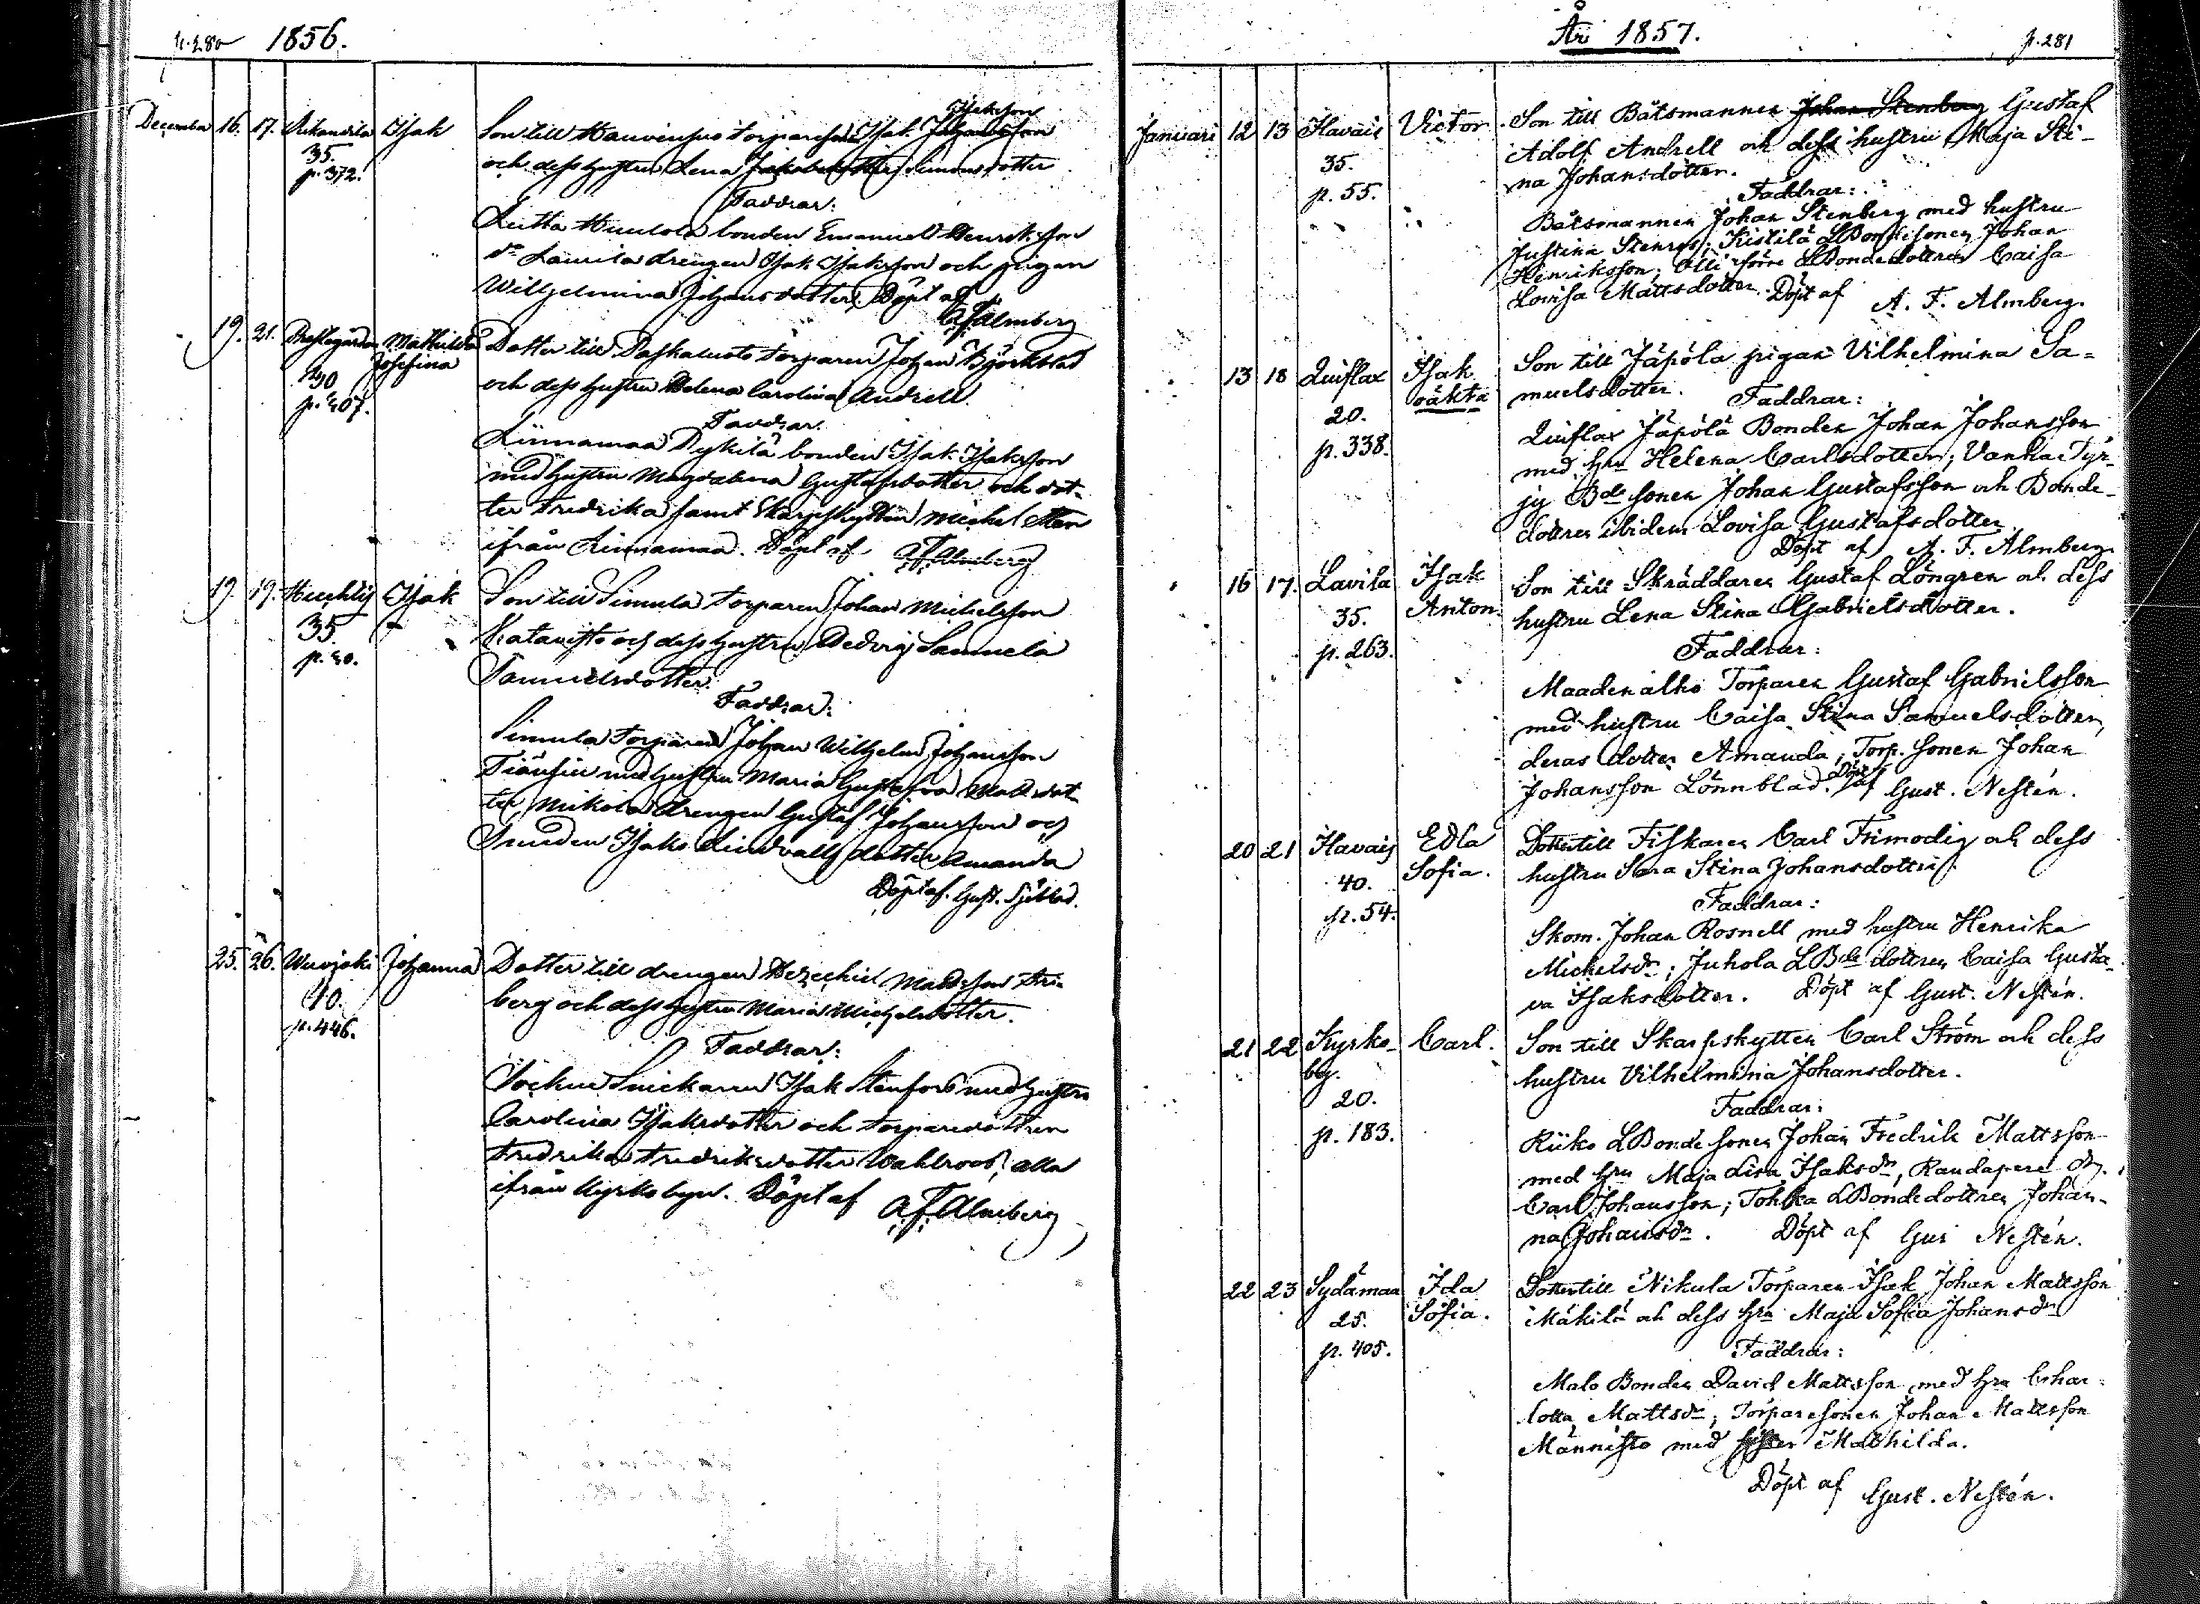 p. 280 1856.
December 16. 17. Isak
35.
p. 372.
Son till Isak Isaksson
och dess hustru Lena Simonsdotter
Faddrar:
bonden Emanuel Henriksson
drengen Isak Isaksson och pigan
Wilhelmina Johansdotter. Döpt af
A. F. Almberg
19. 21. Prestgården Mathilda
Josefina
30
p. 407.
Dotter till torparen Johan Björkstad
och dess hustru Helena Carolina Andrell.
Faddrar:
Linnamaa Dykilä bonden Isak Isaksson
med hustru Magdalena Gustafsdotter och dot-
ter Fredrika samt Skarpskytten Michel
ifrån Linnamaa. Döpt af A. F. Almberg
19. 19. Isak
35.
p. 80.
Son till Simula torparen Johan Michelsson
Katavisto och dess hustru Hedvig Samuela
Samuelsdotter.
Faddrar:
Simula torparen Johan Wilhelm Johansson
med hustru Maria Gustafva Matsdot-
ter, Mikola drengen Gustaf Johansson och
Isaks Lindvalls dotter Amanda
Döpt af Gust. Sjöblad.
25. 26. Johanna
40.
p. 446.
Dotter till drengen Hezechiel Mattsson Fri-
berg och dess hustru Maria Michelsdotter.
Faddrar:
Snickaren Isak Stenfors med hustru
Carolina Isaksdotter och torparedottren
Fredrika Fredriksdotter Wahlroos, alla
ifrån Kyrkobyn. Döpt af A. F. Almberg
År 1857. p. 281
Januari 12 13 Havais Victor.
35.
p. 55.
Son till Båtsmannen Johan Stenberg Gustaf
Adolf Andrell och dess hustru Maja Sti-
na Johansdotter.
Faddrar:
Båtsmannen Johan Stenberg med hustru
Justina Stenros; Kistilä LBondesonen Johan
Henriksson; Olli LBondedottren Caisa
Lovisa Mattsdotter. Döpt af A. F. Almberg.
13 18 Quiflax Isak
oäkta
20.
p. 338.
Son till Jäpölä pigan Vilhelmina Sa-
muelsdotter. Faddrar:
Quiflax Jäpölä Bonden Johan Johansson
med hru Helena Carlsdotter; Vanha Tyr-
jy Bde sonen Johan Gustafsson och Bonde-
dottren ibidem Lovisa Gustafsdotter.
Döpt af A. F. Almberg.
16 17. Lavila Isak
Anton.
35.
p. 263.
Son till Skräddaren Gustaf Löngren och dess
hustru Lena Stina Gabrielsdotter.
Faddrar:
Maadenalho Torparen Gustaf Gabrielsson
med hustru Caisa Stina Samuelsdotter,
deras dotter Amanda; Torp. sonen Johan
Johansson Lönnblad. Döpt af Gust. Nestén.
20 21 Havais Edla
Sofia.
40.
p. 54.
Dotter till Fiskaren Carl Frimodig och dess
hustru Sara Stina Johansdotter.
Faddrar:
Skom. Johan Rosnell med hustru Henrika
Mickelsdr; Juhola LBde dottren Caisa Gusta-
va Isaksdotter. Döpt af Gust. Nestén.
21 22 Kyrko- Carl.
by.
20.
p. 183.
Son till Skarpskytten Carl Ström och dess
hustru Vilhelmina Johansdotter.
Faddrar:
Riiko LBondesonen Johan Fredrik Mattsson
med hru Maja Lisa Isaksdr, Raudapere dg.
Carl Johansson; Tohka LBondedottren Johan-
na Johansdr. Döpt af Gus Nestén.
22 23 Sydämaa Ida
Sofia.
25.
p. 405.
Dotter till Nikula Torparen Isak Johan Mattsson
Mäkilä och dess hru Maja Sofia Johansdr
Faddrar:
Malo Bonden David Mattsson med hru Char-
lotta Mattsdr; Torparesonen Johan Mattsson
Männisto med syster Mathilda.
Döpt af Gust. Nestén.